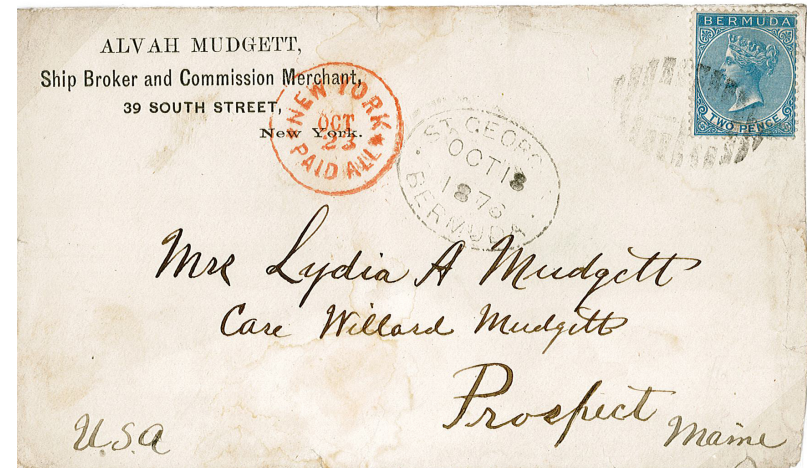 ALVAH MUDGETT,
Ship Broker and Commission Merchant,
39 SOUTH STREET,
New York.
NEW YORK
OCT
23
PAID ALL
ST. GEORG
OCT 18
1876
BERMUDA
BERMUDA
TWO PENCE
Mrs Lydia A Mudgett
Care Willard Mudgett
Prospect
Maine
U.S.A